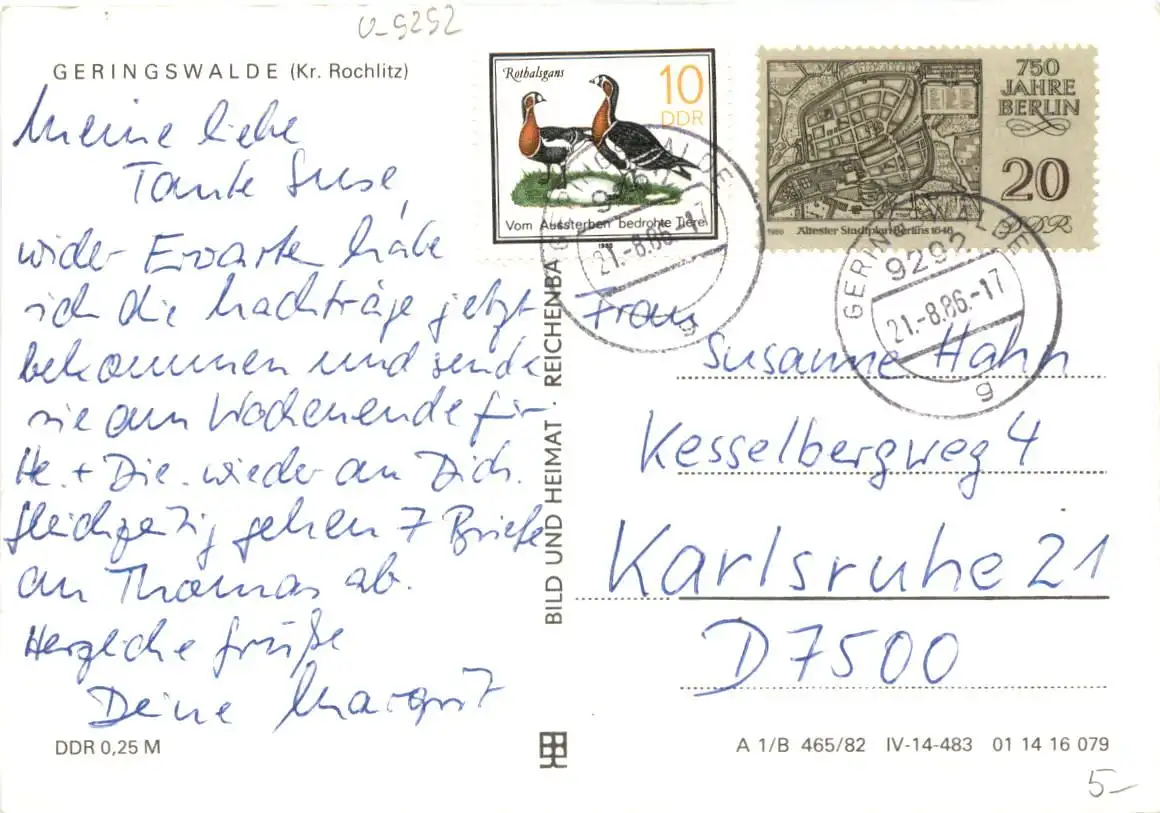 U-9292
GERINGSWALDE (Kr. Rochlitz)
Meine liebe
Tante Suse,
wider Erwarten habe
ich die Nachträge jetzt
bekommen und sende
sie am Wochenende für
He. + Die. wieder an Dich.
Gleichzeitig gehen 7 Briefe
an Thomas ab.
Herzliche Grüße
Deine Margrit
DDR 0,25 M
BILD UND HEIMAT REICHENBA
Rothalsgans
10
DDR
Vom Aussterben bedrohte Tiere
1985
750
JAHRE
BERLIN
20
DDR
1986 Ältester Stadtplan Berlins 1648
GERINGSWALDE
9292
21.-8.86.-17
g
GERINGSWALDE
9292
21.-8.86.-17
g
Frau
Susanne Hahn
Kesselbergweg 4
Karlsruhe 21
D 7500
A 1/B 465/82 IV-14-483 01 14 16 079
5-